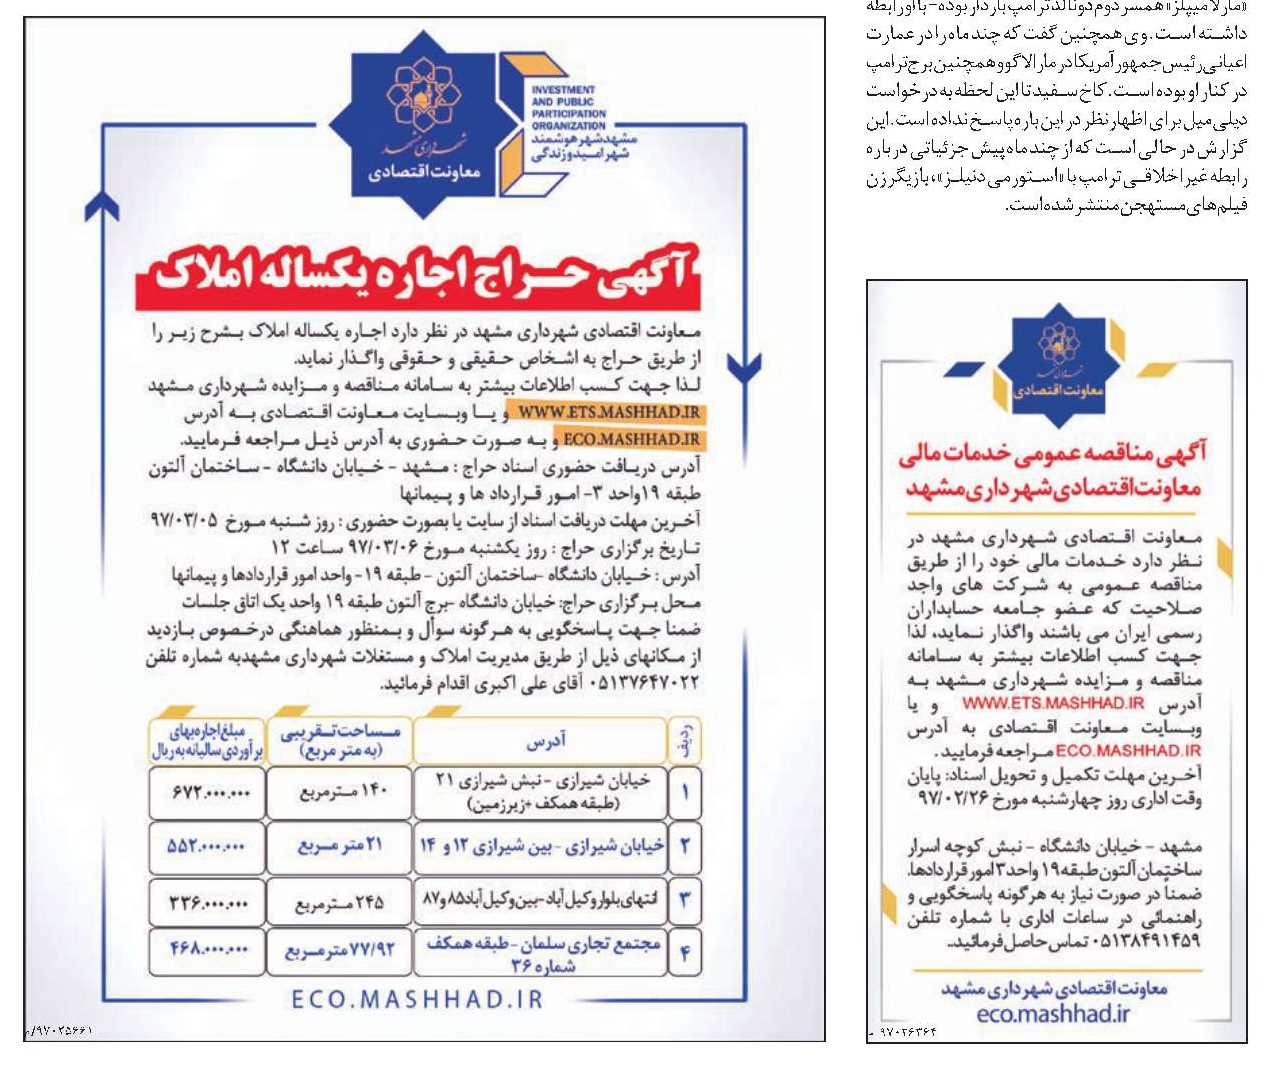 «مارلا میپلز» همسر دوم دونالد ترامپ باردار بوده - با او رابطه
داشته است. وی همچنین گفت که چند ماه را در عمارت
اعیانی رئیس جمهور آمریکا در مارالاگو و همچنین برج ترامپ
در کنار او بوده است. کاخ سفید تا این لحظه به درخواست
دیلی میل برای اظهار نظر در این باره پاسخ نداده است. این
گزارش در حالی است که از چند ماه پیش جزئیاتی درباره
رابطه غیراخلاقی ترامپ با «استورمی دنیلز»، بازیگر زن
فیلم‌های مستهجن منتشر شده است.
شهرداری مشهد
معاونت اقتصادی
آگهی مناقصه عمومی خدمات مالی
معاونت اقتصادی شهرداری مشهد
معاونت اقتصادی شهرداری مشهد در
نظر دارد خدمات مالی خود را از طریق
مناقصه عمومی به شرکت های واجد
صلاحیت که عضو جامعه حسابداران
رسمی ایران می باشند واگذار نماید، لذا
جهت کسب اطلاعات بیشتر به سامانه
مناقصه و مزایده شهرداری مشهد به
آدرس WWW.ETS.MASHHAD.IR و یا
وبسایت معاونت اقتصادی به آدرس
ECO.MASHHAD.IR مراجعه فرمایید.
آخرین مهلت تکمیل و تحویل اسناد: پایان
وقت اداری روز چهارشنبه مورخ ۹۷/۰۲/۲۶
مشهد - خیابان دانشگاه - نبش کوچه اسرار
ساختمان آلتون طبقه ۱۹ واحد۳ امور قراردادها.
ضمناً در صورت نیاز به هرگونه پاسخگویی و
راهنمائی در ساعات اداری با شماره تلفن
۰۵۱۳۸۴۹۱۴۵۹ تماس حاصل فرمائید..
معاونت اقتصادی شهرداری مشهد
eco.mashhad.ir
۹۷۰۲۶۳۶۴ م
شهرداری مشهد
معاونت اقتصادی
INVESTMENT
AND PUBLIC
PARTICIPATION
ORGANIZATION
مشهد شهر هوشمند
شهر امید و زندگی
آگهی حراج اجاره یکساله املاک
معاونت اقتصادی شهرداری مشهد در نظر دارد اجاره یکساله املاک بشرح زیر را
از طریق حراج به اشخاص حقیقی و حقوقی واگذار نماید.
لذا جهت کسب اطلاعات بیشتر به سامانه مناقصه و مزایده شهرداری مشهد
WWW.ETS.MASHHAD.IR و یا وبسایت معاونت اقتصادی به آدرس
ECO.MASHHAD.IR و به صورت حضوری به آدرس ذیل مراجعه فرمایید.
آدرس دریافت حضوری اسناد حراج : مشهد - خیابان دانشگاه - ساختمان آلتون
طبقه ۱۹واحد ۳- امور قرارداد ها و پیمانها
آخرین مهلت دریافت اسناد از سایت یا بصورت حضوری : روز شنبه مورخ ۹۷/۰۳/۰۵
تاریخ برگزاری حراج : روز یکشنبه مورخ ۹۷/۰۳/۰۶ ساعت ۱۲
آدرس : خیابان دانشگاه -ساختمان آلتون - طبقه ۱۹- واحد امور قراردادها و پیمانها
محل برگزاری حراج: خیابان دانشگاه -برج آلتون طبقه ۱۹ واحد یک اتاق جلسات
ضمنا جهت پاسخگویی به هرگونه سوأل و بمنظور هماهنگی درخصوص بازدید
از مکانهای ذیل از طریق مدیریت املاک و مستغلات شهرداری مشهدبه شماره تلفن
۰۵۱۳۷۶۴۷۰۲۲ آقای علی اکبری اقدام فرمائید.
ردیف آدرس مساحت تقریبی (به متر مربع) مبلغ اجاره بهای برآوردی سالیانه به ریال
۱ خیابان شیرازی - نبش شیرازی ۲۱ (طبقه همکف +زیرزمین) ۱۴۰ مترمربع ۶۷۲.۰۰۰.۰۰۰
۲ خیابان شیرازی - بین شیرازی ۱۲ و ۱۴ ۲۱ متر مربع ۵۵۲.۰۰۰.۰۰۰
۳ انتهای بلوار وکیل آباد-بین وکیل آباد۸۵ و ۸۷ ۲۴۵ مترمربع ۳۳۶.۰۰۰.۰۰۰
۴ مجتمع تجاری سلمان - طبقه همکف شماره ۳۶ ۷۷/۹۲مترمربع ۴۶۸.۰۰۰.۰۰۰
ECO.MASHHAD.IR
۹۷۰۲۵۶۶۱/م